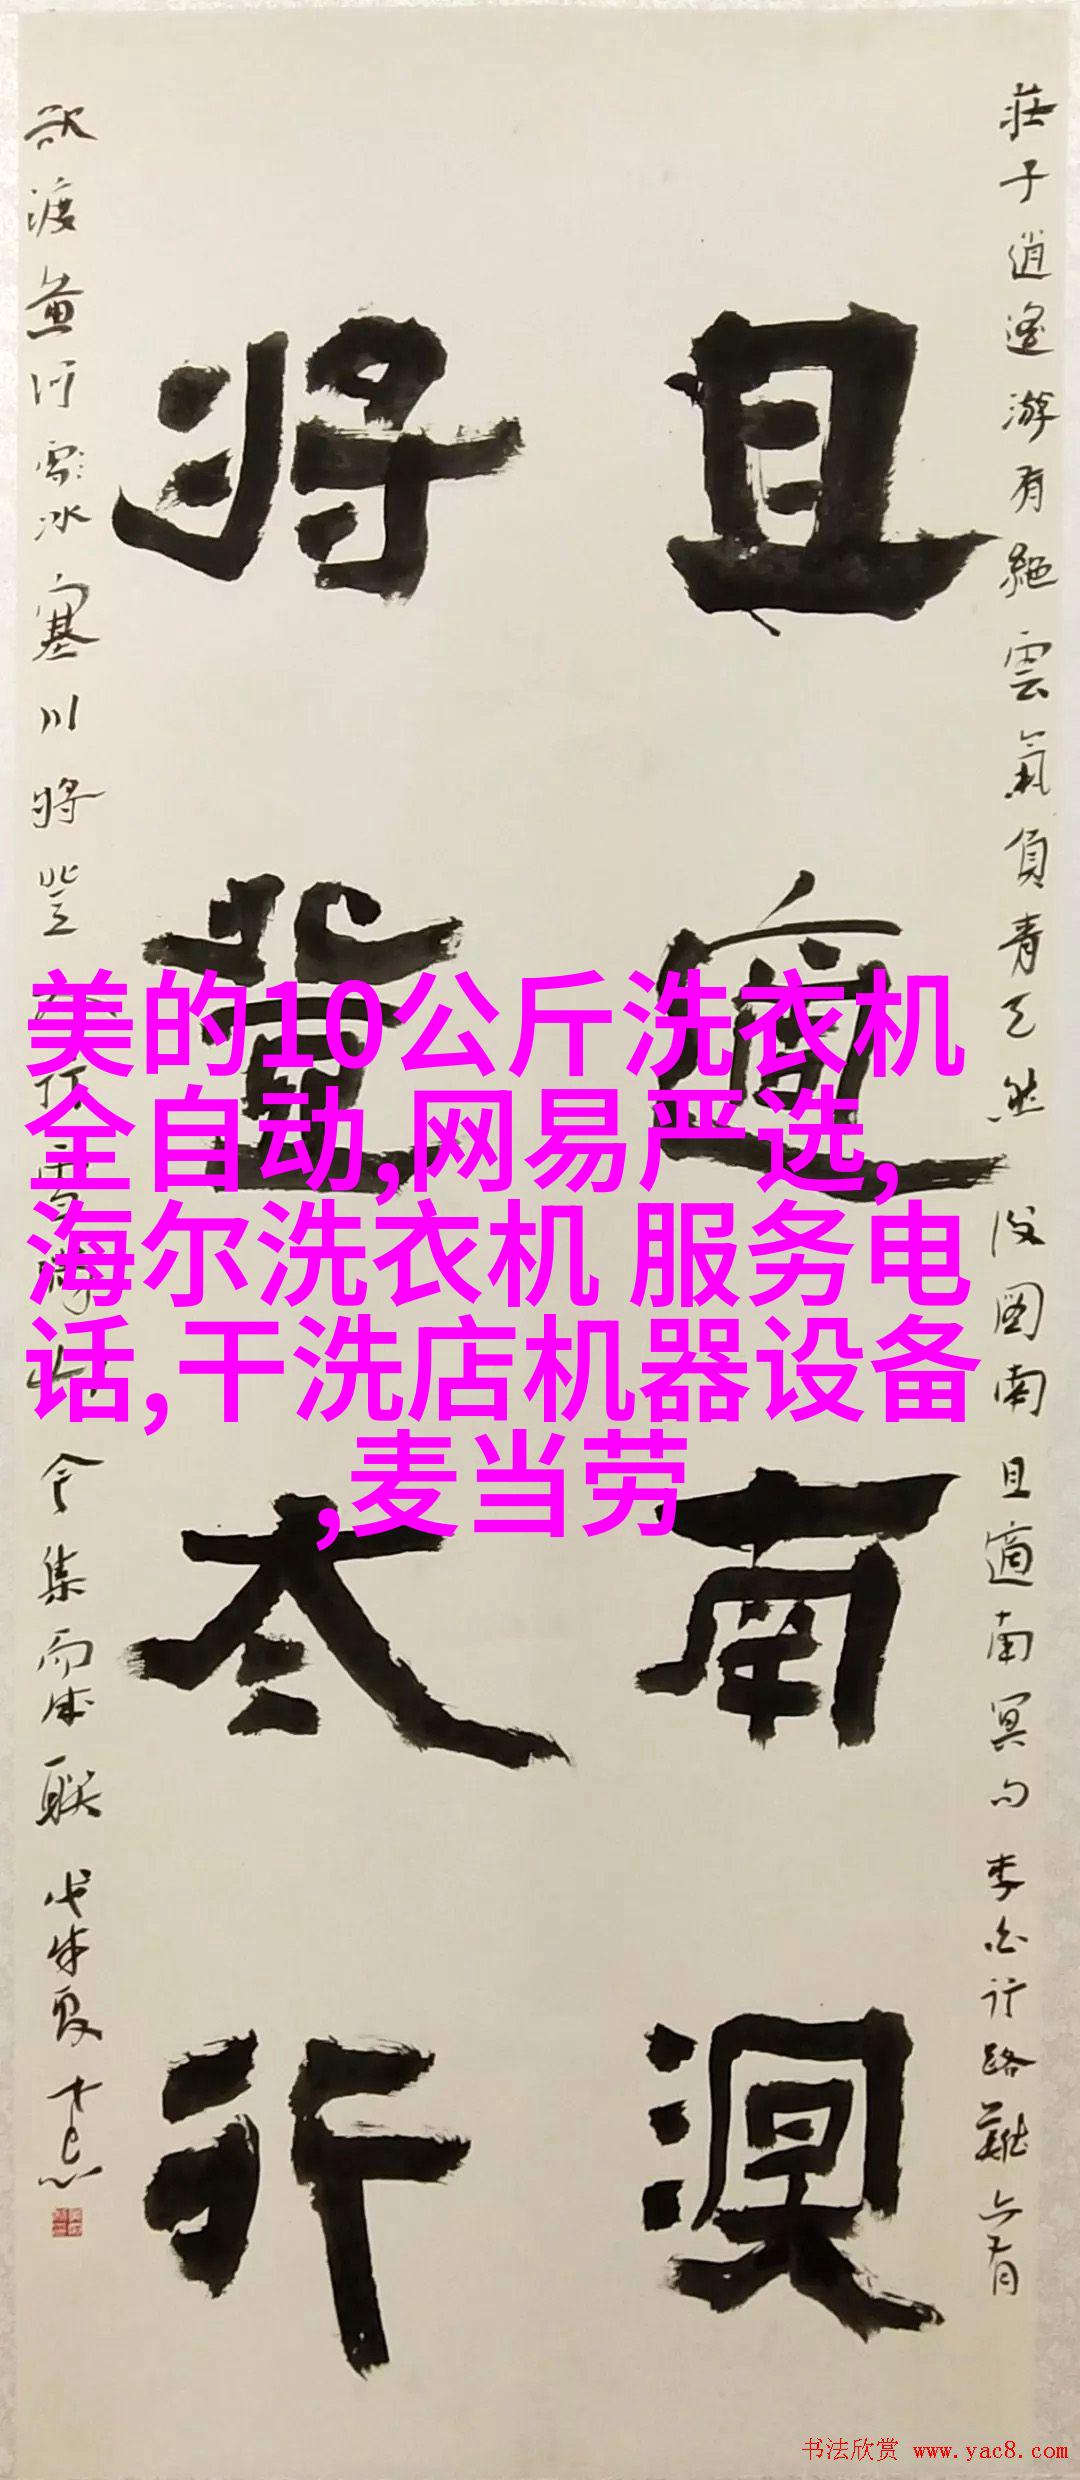 莊子逍遙游有絕雲氣負青天然後圖南且適南冥句李白行路難亦有
且適南溟
將登太行
欲渡黃河雪冰塞川將登太行雪滿山今集而成聯戊戌夏
美的10公斤洗衣机
全自动,网易严选,
海尔洗衣机 服务电
话,干洗店机器设备
,麦当劳
书法欣赏 www.yac8.com